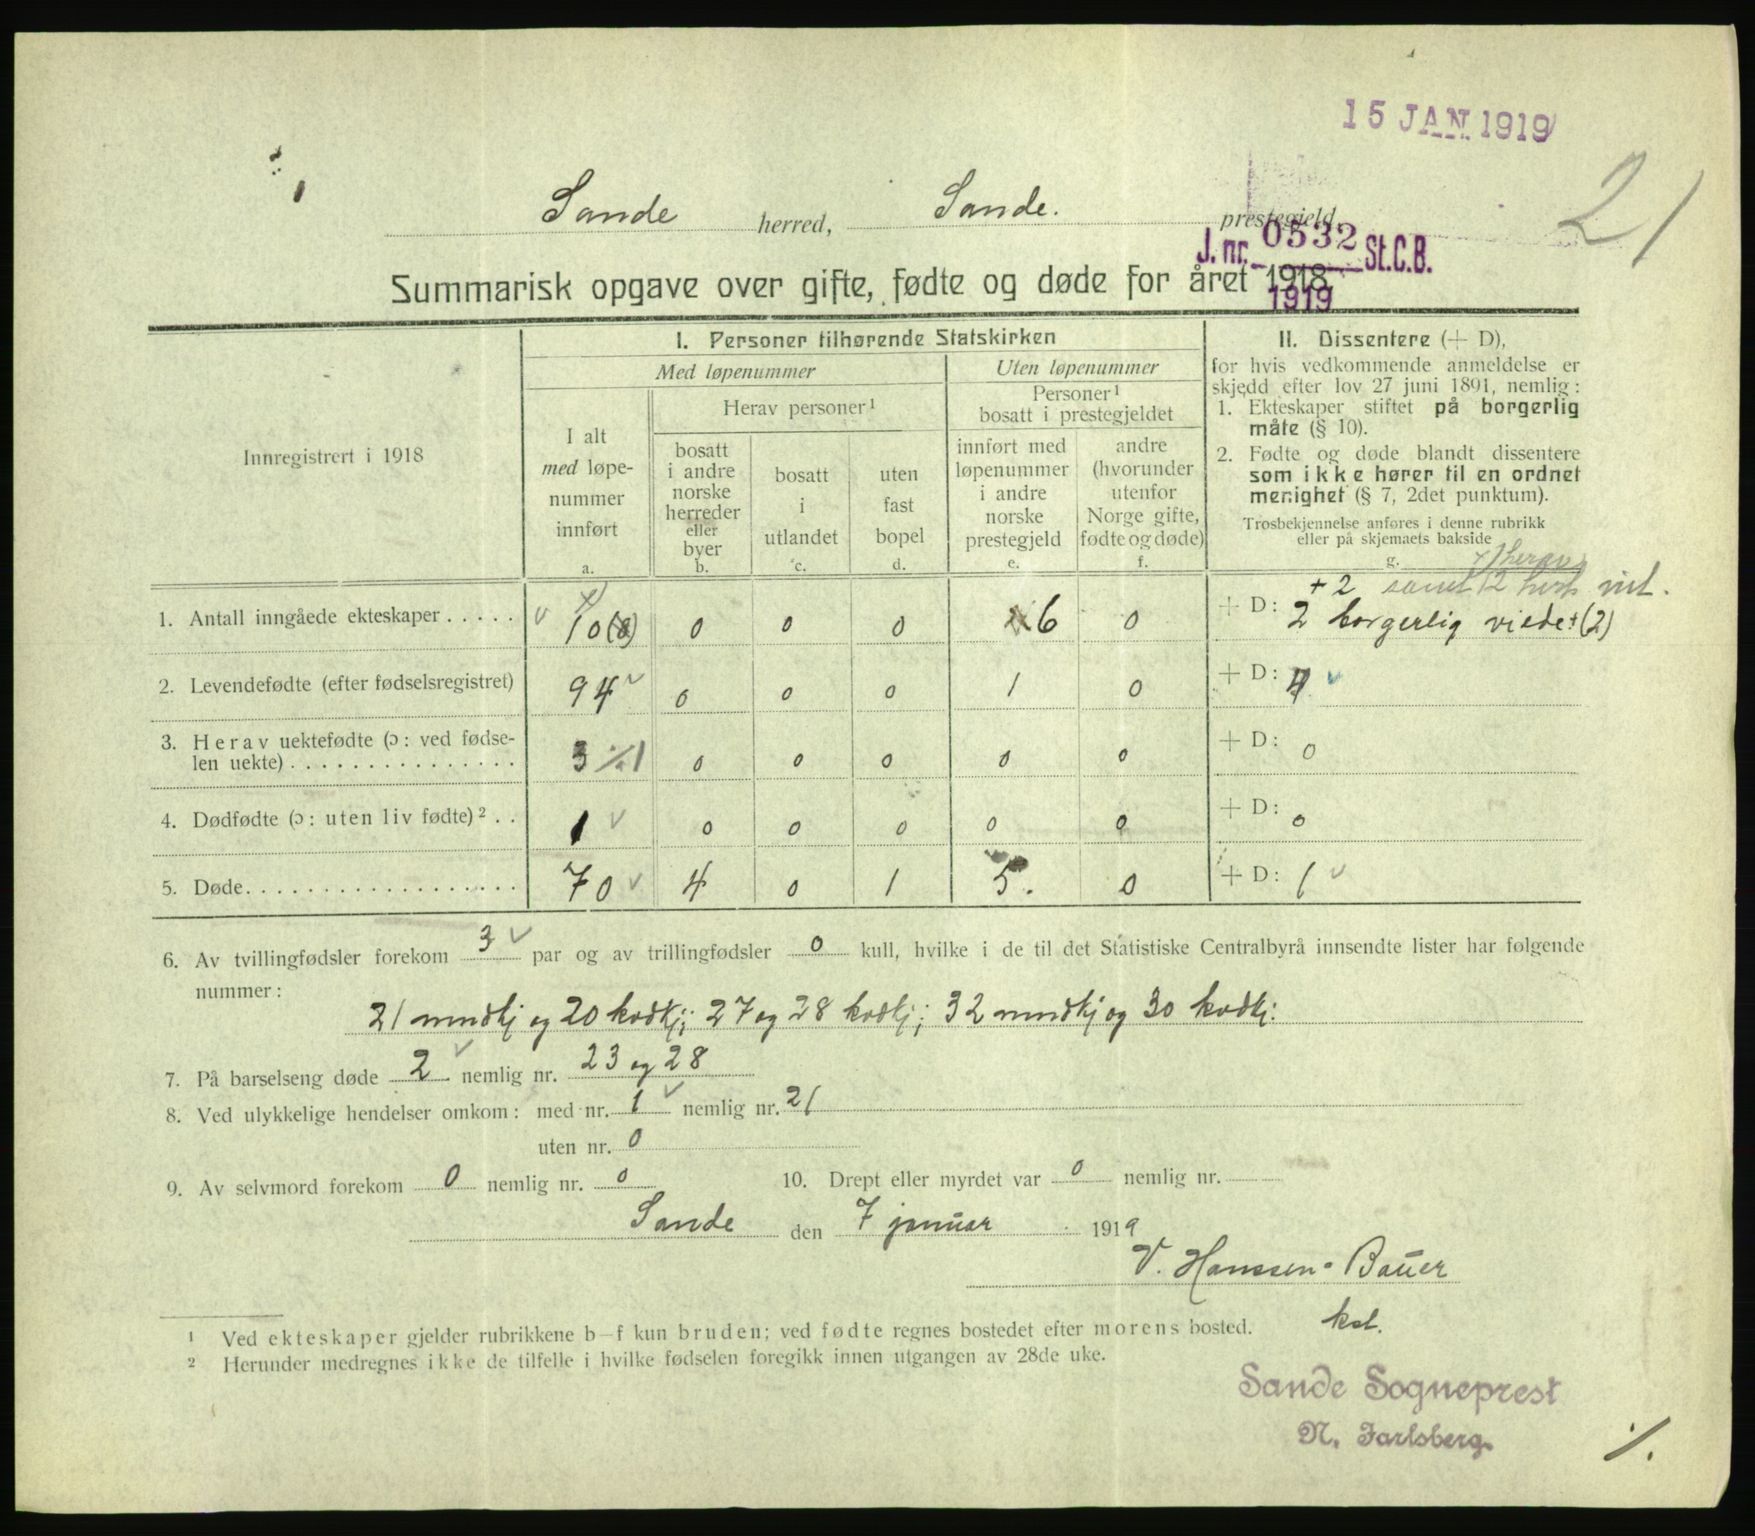 15 JAN. 1919
21
Sande herred, Sande. prestegjeld.
J. nr. 0532 St.C.B.
1919
Summarisk opgave over gifte, fødte og døde for året 1918.
Innregistrert i 1918
I. Personer tilhørende Statskirken
Med løpenummer
Uten løpenummer
I alt
med løpe-
nummer
innført
a.
Herav personer¹
bosatt
i andre
norske
herreder
eller
byer
b.
bosatt
i
utlandet
c.
uten
fast
bopel
d.
Personer¹
bosatt i prestegjeldet
innført med
løpenummer
i andre
norske
prestegjeld
e.
andre
(hvorunder
utenfor
Norge gifte,
fødte og døde)
f.
II. Dissentere (+ D),
for hvis vedkommende anmeldelse er
skjedd efter lov 27 juni 1891, nemlig:
1. Ekteskaper stiftet på borgerlig
måte (§ 10).
2. Fødte og døde blandt dissentere
som ikke hører til en ordnet
menighet (§ 7, 2det punktum).
Trosbekjennelse anføres i denne rubrikk
eller på skjemaets bakside
g.
+ 2
1. Antall inngåede ekteskaper . . . . . 10 (8) 0 0 0 6 0 + D: 2 borgerlig viede (2)
2. Levendefødte (efter fødselsregistret) 94 0 0 0 1 0 + D: 4
3. Herav uektefødte (ɔ: ved fødse-
len uekte) . . . . . . . . . . . . . . . 3 ⁒ 1 0 0 0 0 0 + D: 0
4. Dødfødte (ɔ: uten liv fødte)² . . 1 0 0 0 0 0 + D: 0
5. Døde. . . . . . . . . . . . . . . . . . 70 4 0 1 5. 0 + D: 1
6. Av tvillingfødsler forekom 3 par og av trillingfødsler 0 kull, hvilke i de til det Statistiske Centralbyrå innsendte lister har følgende
nummer:
21 mndkj og 20 kvdkj; 27 og 28 kvdkj; 32 mndkj og 30 kvdkj.
7. På barselseng døde 2 nemlig nr. 23 og 28
8. Ved ulykkelige hendelser omkom: med nr. 1 nemlig nr. 21
uten nr. 0
9. Av selvmord forekom 0 nemlig nr. 0 10. Drept eller myrdet var 0 nemlig nr.
Sande den 7 januar 1919
V. Hanssen-Bauer
kst.
¹ Ved ekteskaper gjelder rubrikkene b–f kun bruden; ved fødte regnes bostedet efter morens bosted.
² Herunder medregnes ikke de tilfelle i hvilke fødselen foregikk innen utgangen av 28de uke.
Sande Sogneprest
N. Jarlsberg.
⁒